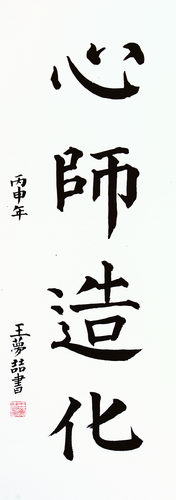 心師造化
丙申年
王夢喆書